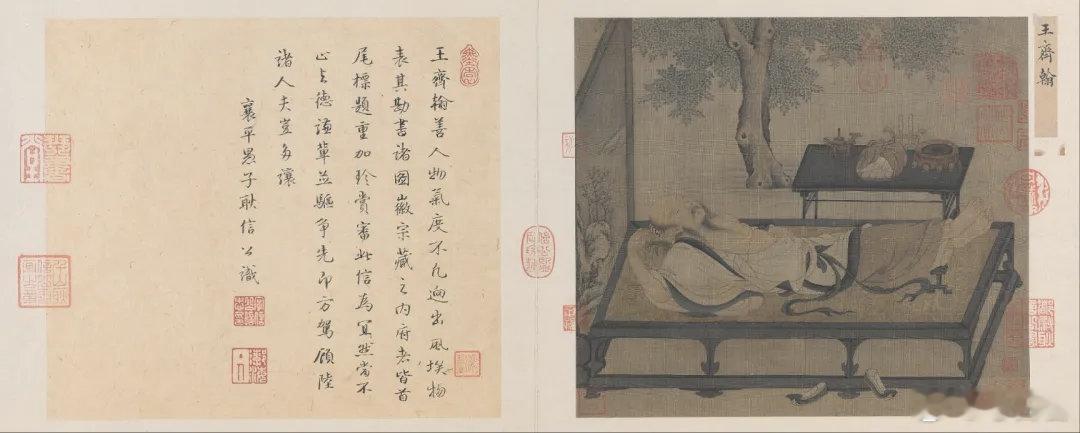 王齊翰
王齊翰善人物氣度不凡迥出風埃物
表其勘書諸圖徽宗藏之内府者皆首
尾標題重加珍賞審此信為然當不
止与德謙輩並驅爭先即方駕顧陸
諸人夫豈多讓
襄平愚子耿信公識